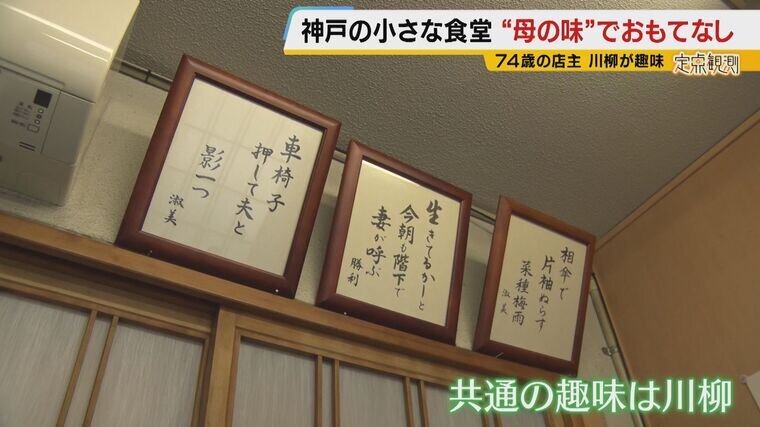 神戸の小さな食堂 “母の味”でおもてなし
74歳の店主 川柳が趣味
定点観測
車椅子
押して夫と
影一つ
淑美
生きてるかーと
今朝も階下で
妻が呼ぶ
勝利
相傘で
片袖ぬらす
菜種梅雨
淑美
共通の趣味は川柳